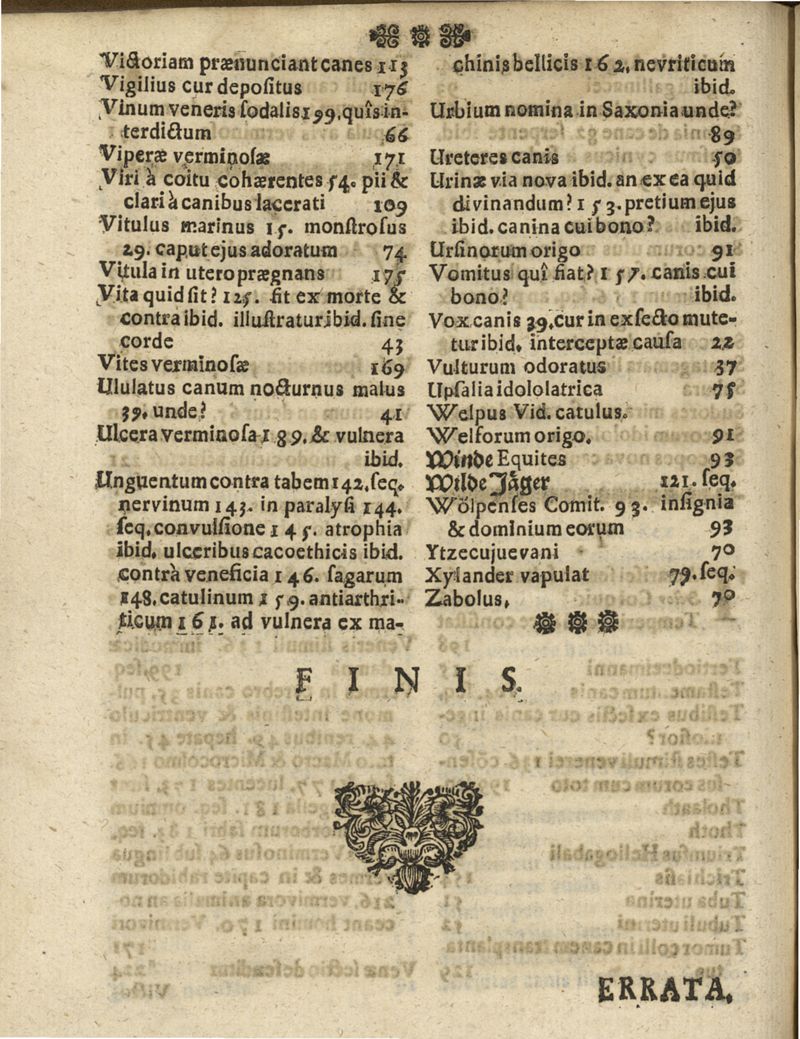 Victoriam prænunciant canes 113
Vigilius cur depoſitus 176
Vinum veneris ſodalis 199. quîs in-
terdictum 66
Viperæ verminoſæ 171
Viri à coitu cohærentes 54. pii &
clari à canibus lacerati 109
Vitulus marinus 15. monſtroſus
29. caput ejus adoratum 74
Vitula in utero prægnans 175
Vita quid ſit? 125. fit ex morte &
contra ibid. illuſtratur ibid. ſine
corde 43
Vites verminoſæ 169
Ululatus canum nocturnus malus
39. unde? 41
Ulcera verminoſa 189. & vulnera
ibid.
Unguentum contra tabem 142. ſeq.
nervinum 143. in paralyſi 144.
ſeq. convulſione 145. atrophia
ibid. ulceribus cacoethicis ibid.
contrà veneficia 146. ſagarum
148. catulinum 159. antiarthri-
ticum 161. ad vulnera ex ma-
chinis bellicis 162. nevriticum
ibid.
Urbium nomina in Saxonia unde?
89
Ureteres canis 50
Urinæ via nova ibid. an ex ea quid
divinandum? 153. pretium ejus
ibid. canina cui bono? ibid.
Urſinorum origo 91
Vomitus quî fiat? 157. canis cui
bono? ibid.
Vox canis 39. cur in exſecto mute-
tur ibid. interceptæ cauſa 22
Vulturum odoratus 37
Upſalia idololatrica 75
Welpus Vid. catulus.
Welforum origo. 91
Winde Equites 93
Wilde Jäger 121. ſeq.
Wölpenſes Comit. 93. inſignia
& dominium eorum 93
Ytzecujuevani 70
Xylander vapulat 79. ſeq.
Zabolus. 70
FINIS.
ERRATA.